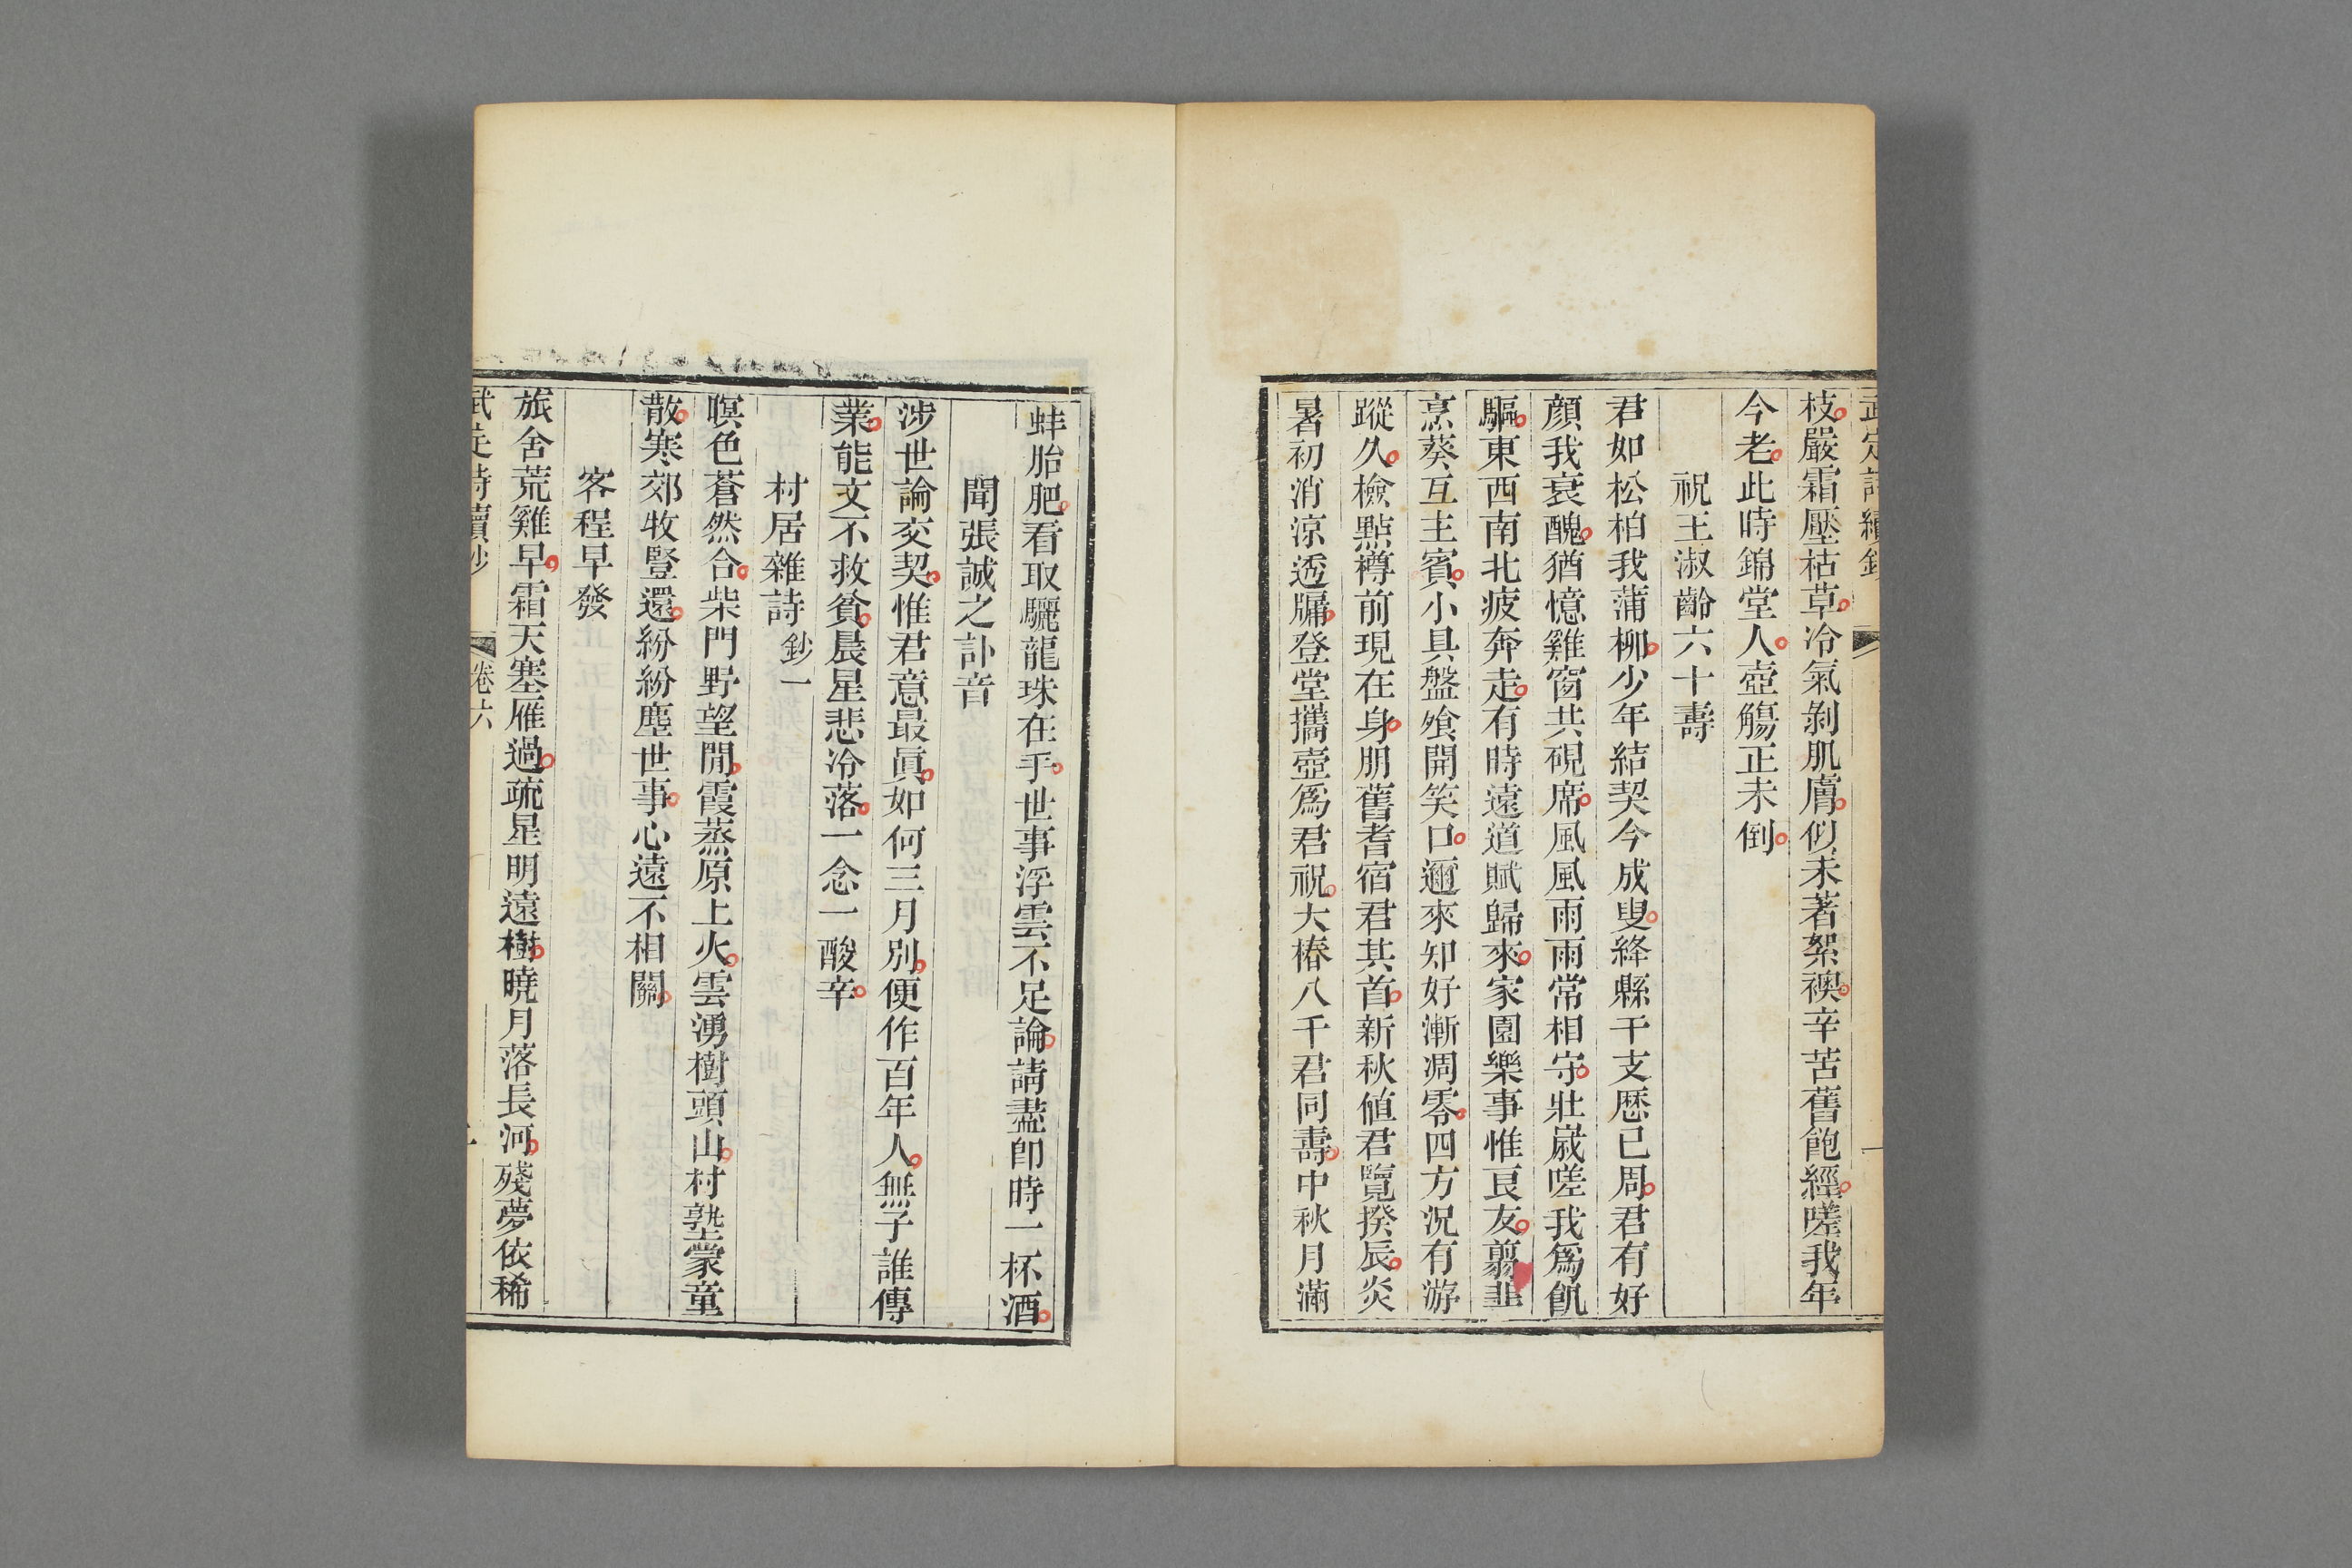 武定詩續鈔
枝嚴霜壓枯草冷氣剝肌膚似未著絮襖辛苦舊飽經嗟我年
今老此時錦堂人壺觴正未倒
祝王淑齡六十壽
君如松柏我蒲柳少年結契今成叟絳縣干支歷已周君有好
顏我衰醜猶憶雞窗共硯席風風雨雨常相守壯歲嗟我爲飢
驅東西南北疲奔走有時遠道賦歸來家園樂事惟良友翦韭
烹葵互主賓小具盤飱開笑口邇來知好漸凋零四方況有游
蹤久檢點罇前現在身朋舊耆宿君其首新秋値君覽揆辰炎
暑初消涼透牖登堂攜壺爲君祝大椿八千君同壽中秋月滿
蚌胎肥看取驪龍珠在手世事浮雲不足論請盡卽時一杯酒
聞張誠之訃音
涉世論交契惟君意最眞如何三月別便作百年人無子誰傳
業能文不救貧晨星悲冷落一念一酸辛
村居雜詩 鈔一
暝色蒼然合柴門野望閒霞蒸原上火雲湧樹頭山村塾蒙童
散寒郊牧豎還紛紛塵世事心遠不相關
客程早發
旅舍荒雞早霜天塞雁過疏星明遠樹曉月落長河殘夢依稀
武定詩續鈔 卷六